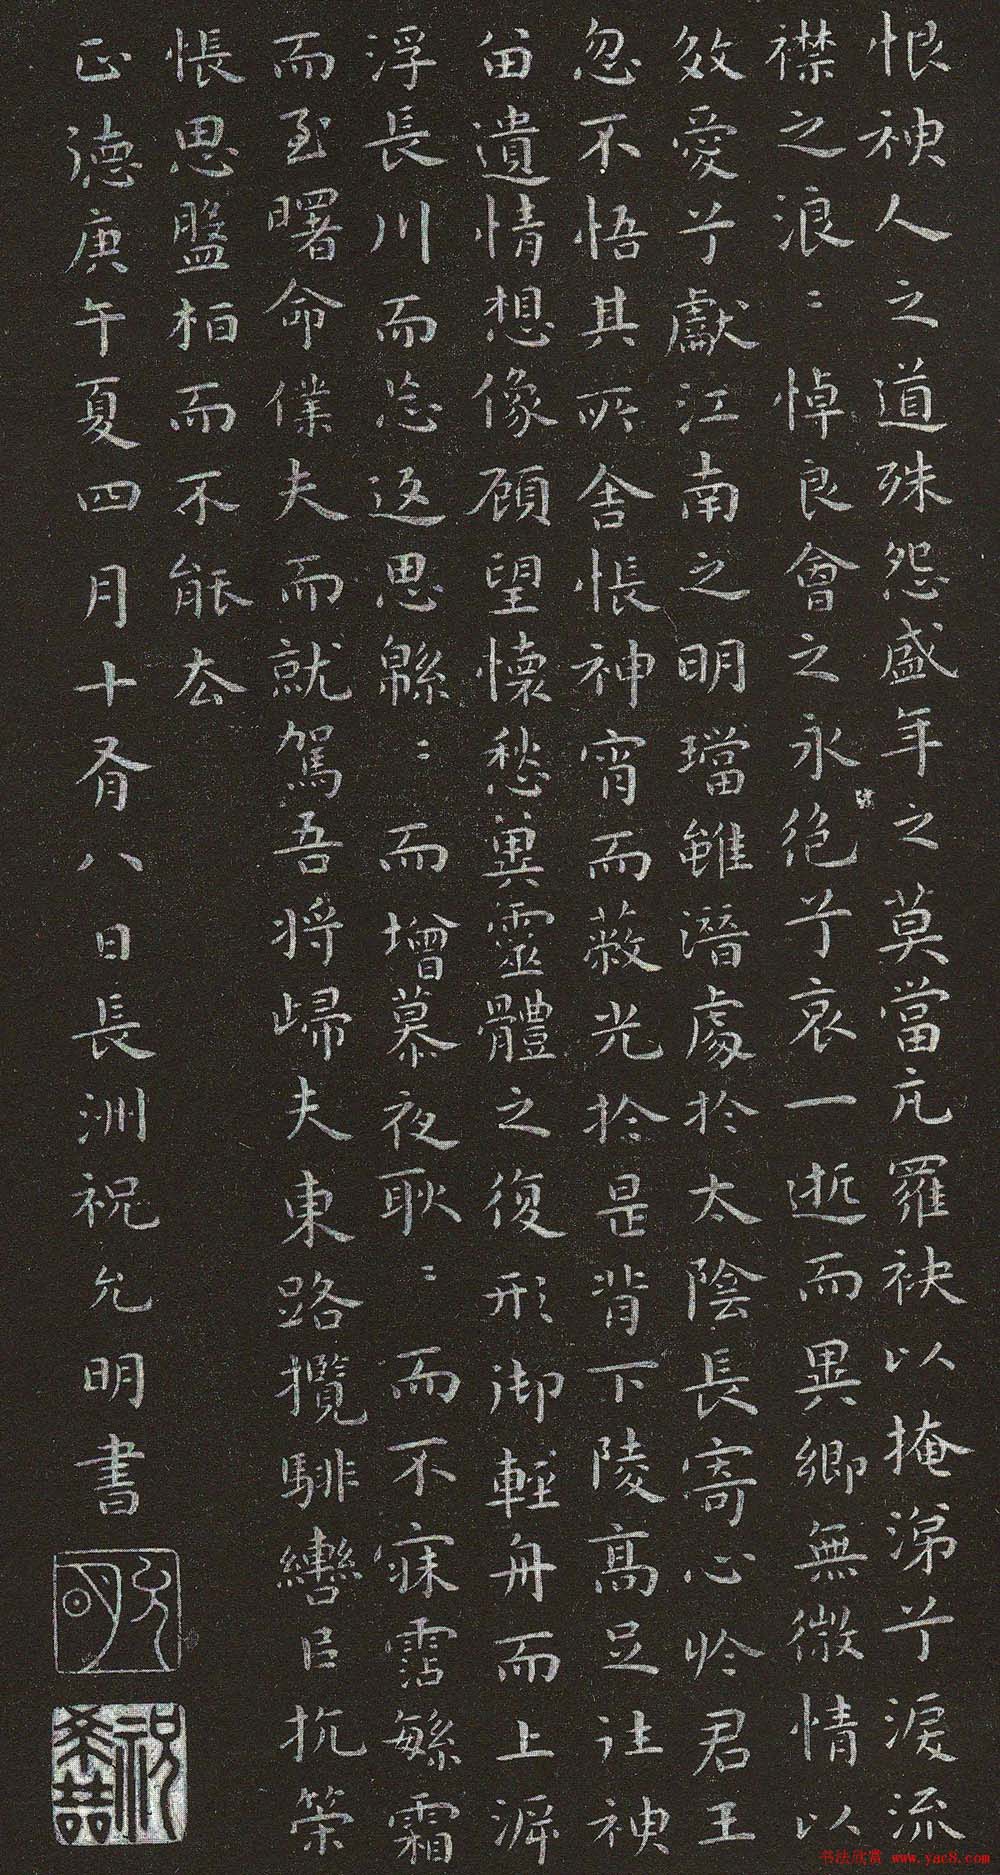 恨神人之道殊怨盛年之莫當亢羅袂以掩涕兮淚流
襟之浪〻悼良會之永绝兮哀一逝而異郷無微情以
效愛兮獻江南之明璫雖潛處於太陰長寄心於君王
忽不悟其所舍悵神宵而蔽光於是背下陵高足往神
留遺情想像顧望懷愁兾靈體之復形御輕舟而上泝
浮長川而忘返思緜〻而增慕夜耿〻而不寐霑繁霜
而至曙命僕夫而就駕吾将歸夫東路攬騑轡㠯抗策
悵思盤栢而不能去
正德庚午夏四月十有八日長洲祝允明書
允明
祝希喆
书法欣赏 www.yac8.com